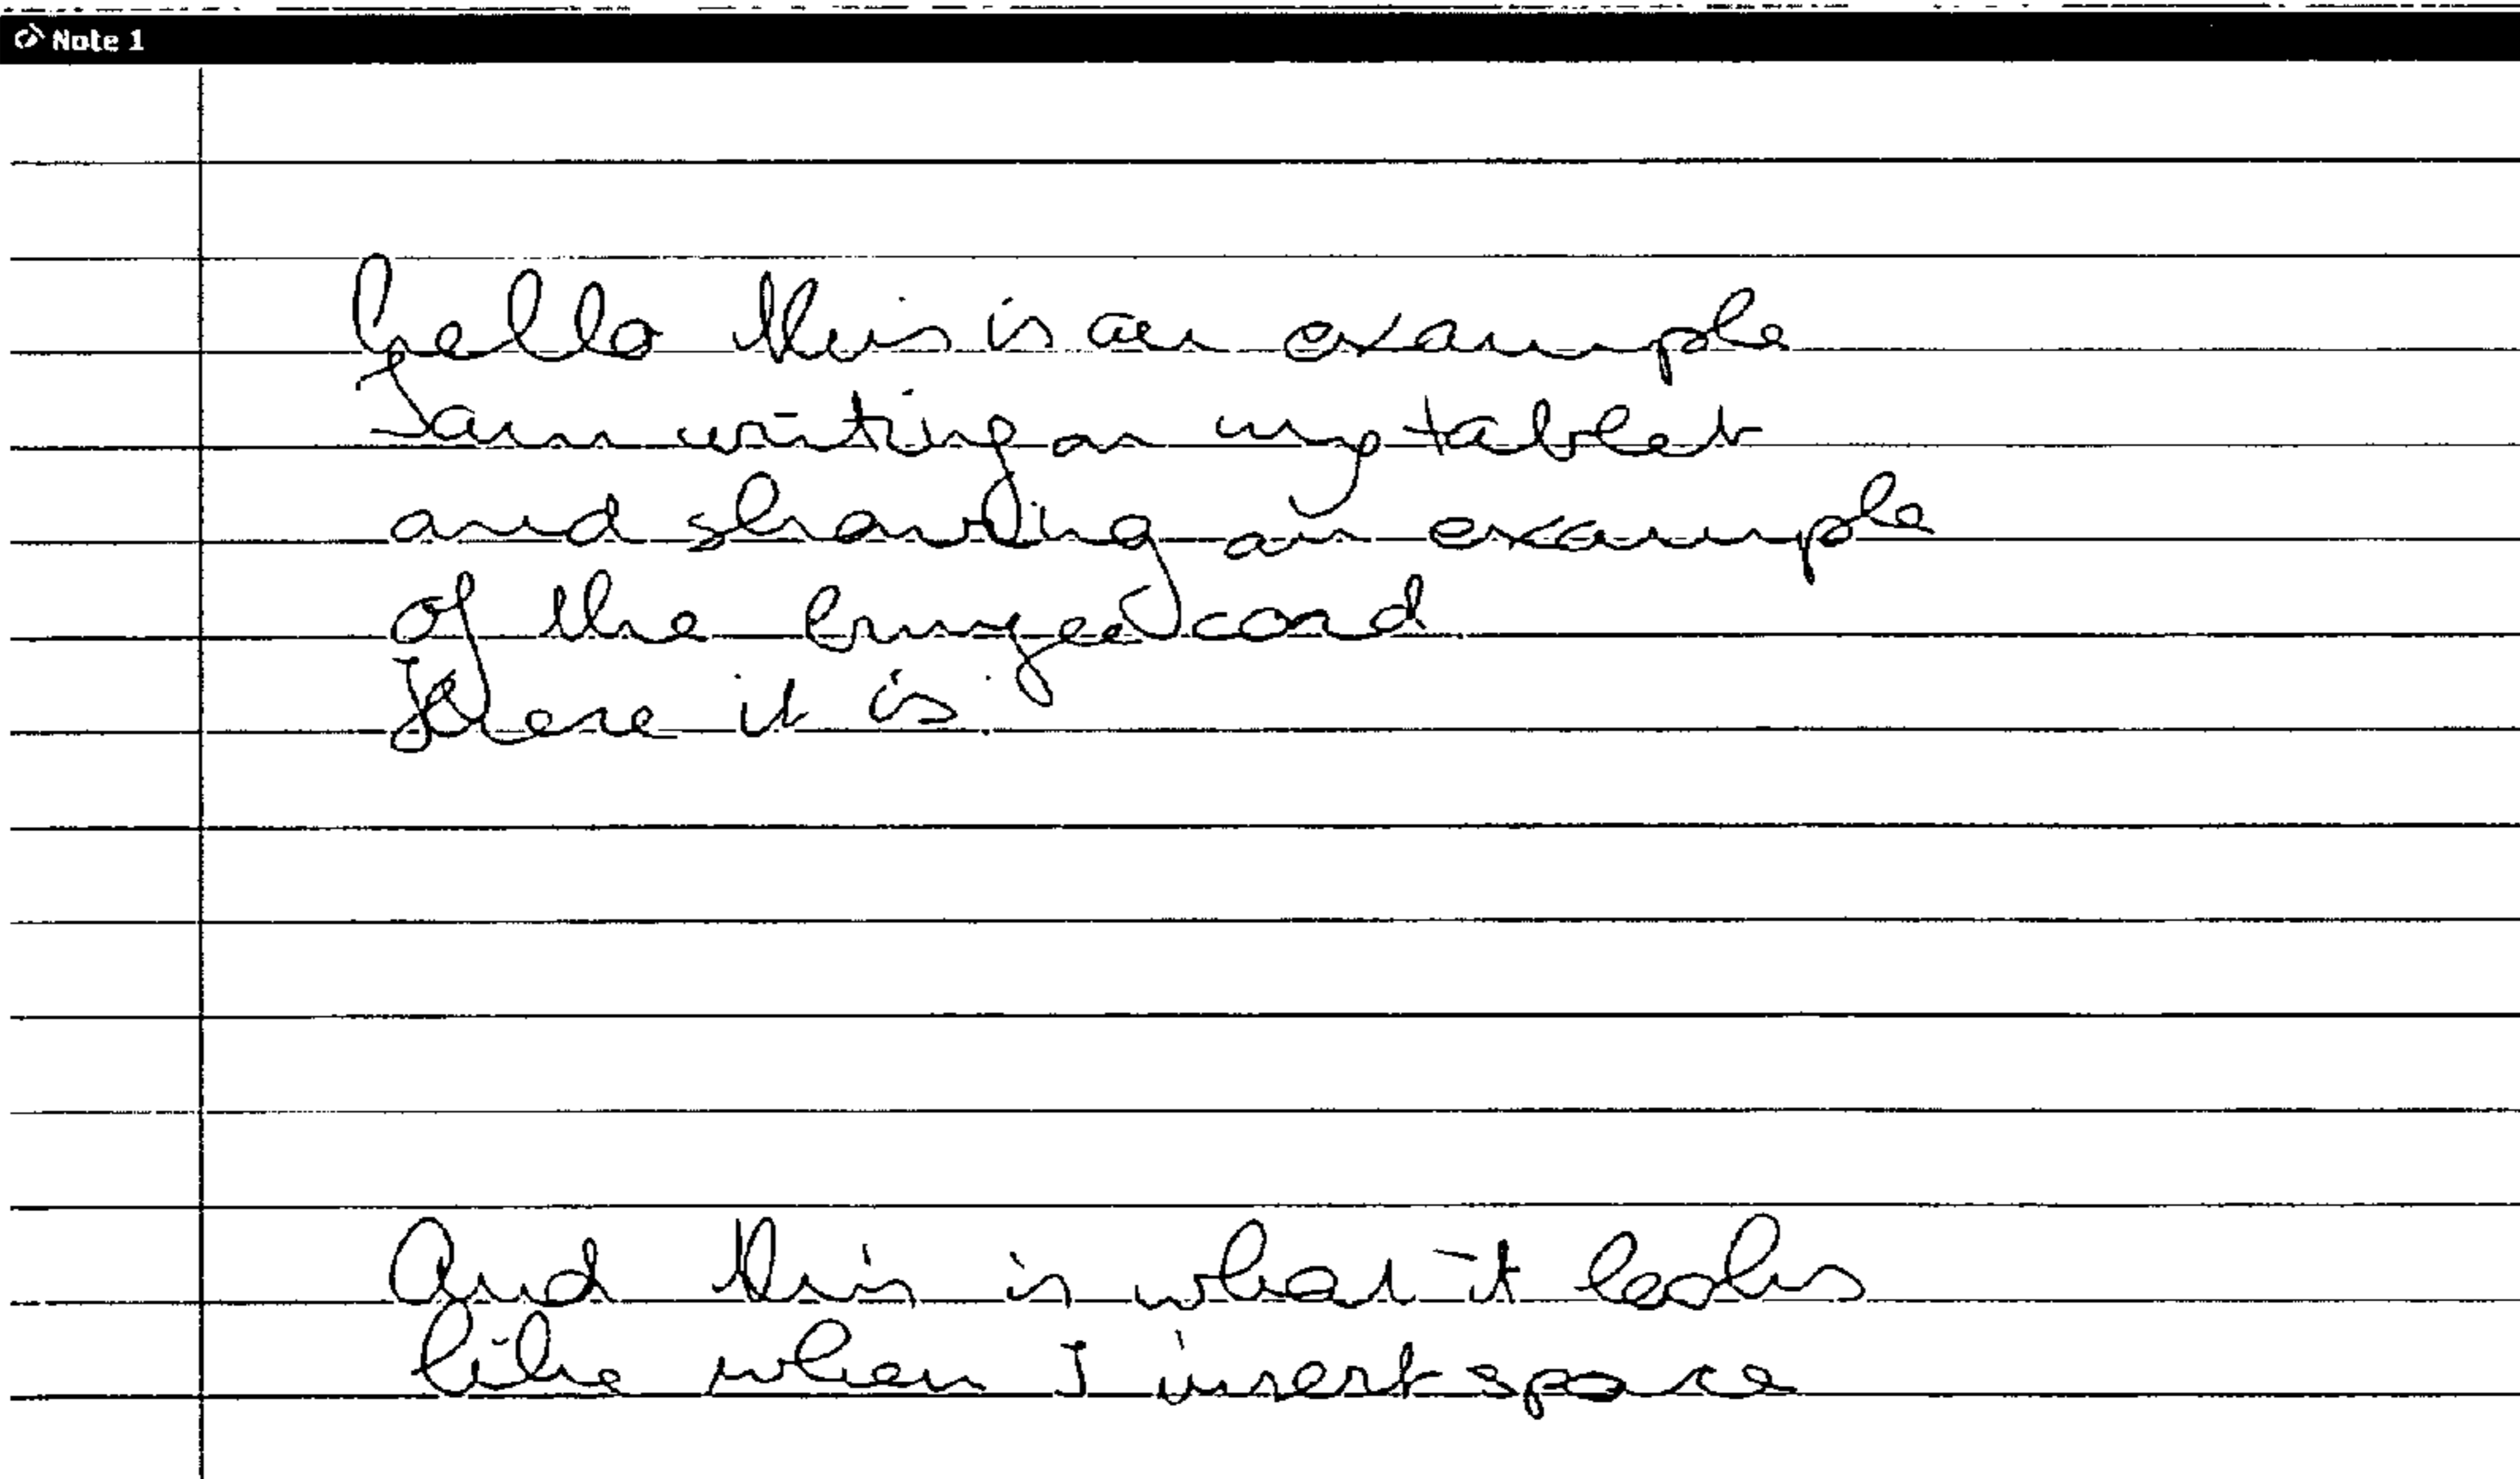 Note 1
hello this is an example
I am writing on my tablet
and sharing an example
of the
Here it is.
And this is what it looks
like when I insert space